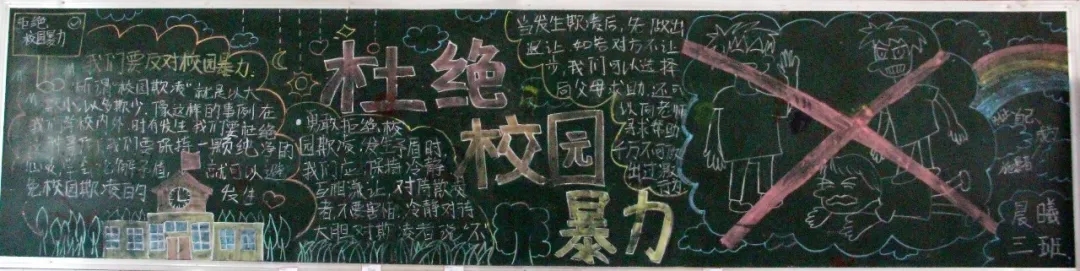 拒绝
校园暴力
我们要反对校园暴力.
所谓"校园欺凌"就是以大
欺小,以多欺少,像这样的事例在
我们学校内外,时有发生 我们要杜绝
我们要保持一颗纯净的
就可以避
免校园欺凌的
发生
杜绝
校园
暴力
勇敢拒绝校
园欺凌,发生矛盾时
我们应保持冷静
互相谦让,对待欺凌
者不要害怕,冷静对待
大胆对欺凌者说"不"
当发生欺凌后,先做出
退让,如若对方不让
步,我们可以选择
向父母求助,还可
以向老师
寻求帮助
千万不可做
出过激
行为
晨曦
三班